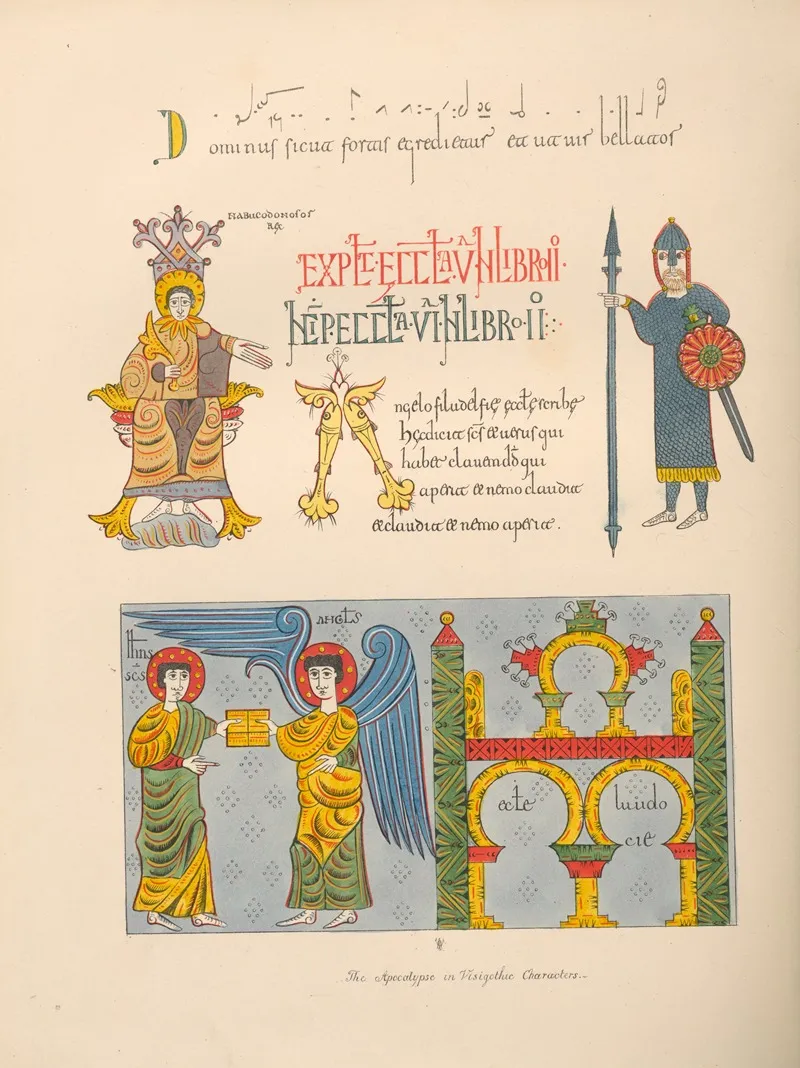 Dominus sicut fortis egredietur et ut uir bellator
NABUCODONOSOR
REX
EXPLT·ECCLA·V·IN LIBRO II·
INCIP·ECCLA·VI·IN LIBRO·II
Angelo filadelfie eccle scribe
hec dicit scs et uerus qui
habet clauem dd qui
aperit et nemo claudit
et claudit et nemo aperit.
ANGLS
Ihns
scs
ecle laudo
cie
The Apocalypse in Visigothic Characters.